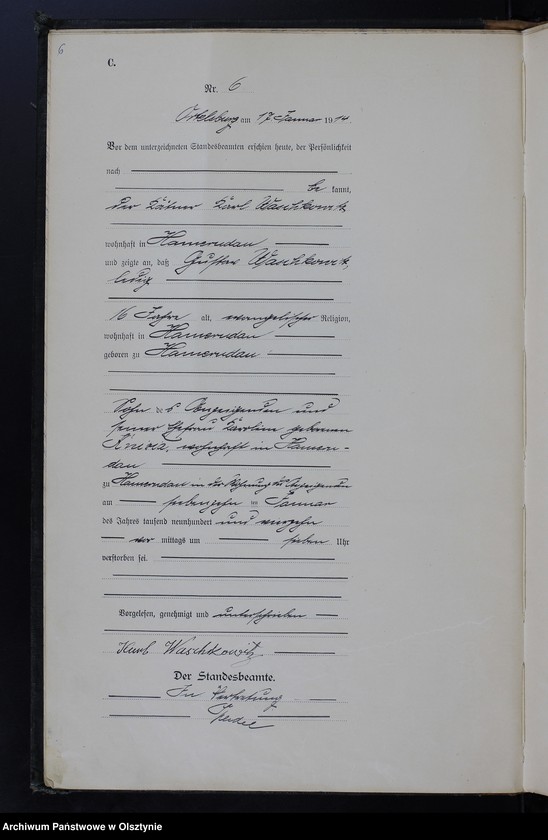 6
C.
Nr. 6
Ortelsburg am 17 Januar 1914
Vor dem unterzeichneten Standesbeamten erschien heute, der Persönlichkeit
nach
be kannt,
der Kätner Karl Waschkowitz
wohnhaft in Hamerudau
und zeigte an, daß Gustav Waschkowitz,
ledig
16 Jahre alt, evangelischer Religion,
wohnhaft in Hamerudau
geboren zu Hamerudau
Sohn des Anzeigenden und
seiner Ehefrau Karoline geborenen
wohnhaft in Hameru-
dau
zu Hamerudau in der Wohnung des Anzeigenden
am siebenzehn ten Januar
des Jahres tausend neunhundert und vierzehn
vor mittags um sieben Uhr
verstorben sei.
Vorgelesen, genehmigt und unterschrieben
Karl Waschkowitz
Der Standesbeamte.
In Vertretung
Archiwum Państwowe w Olsztynie